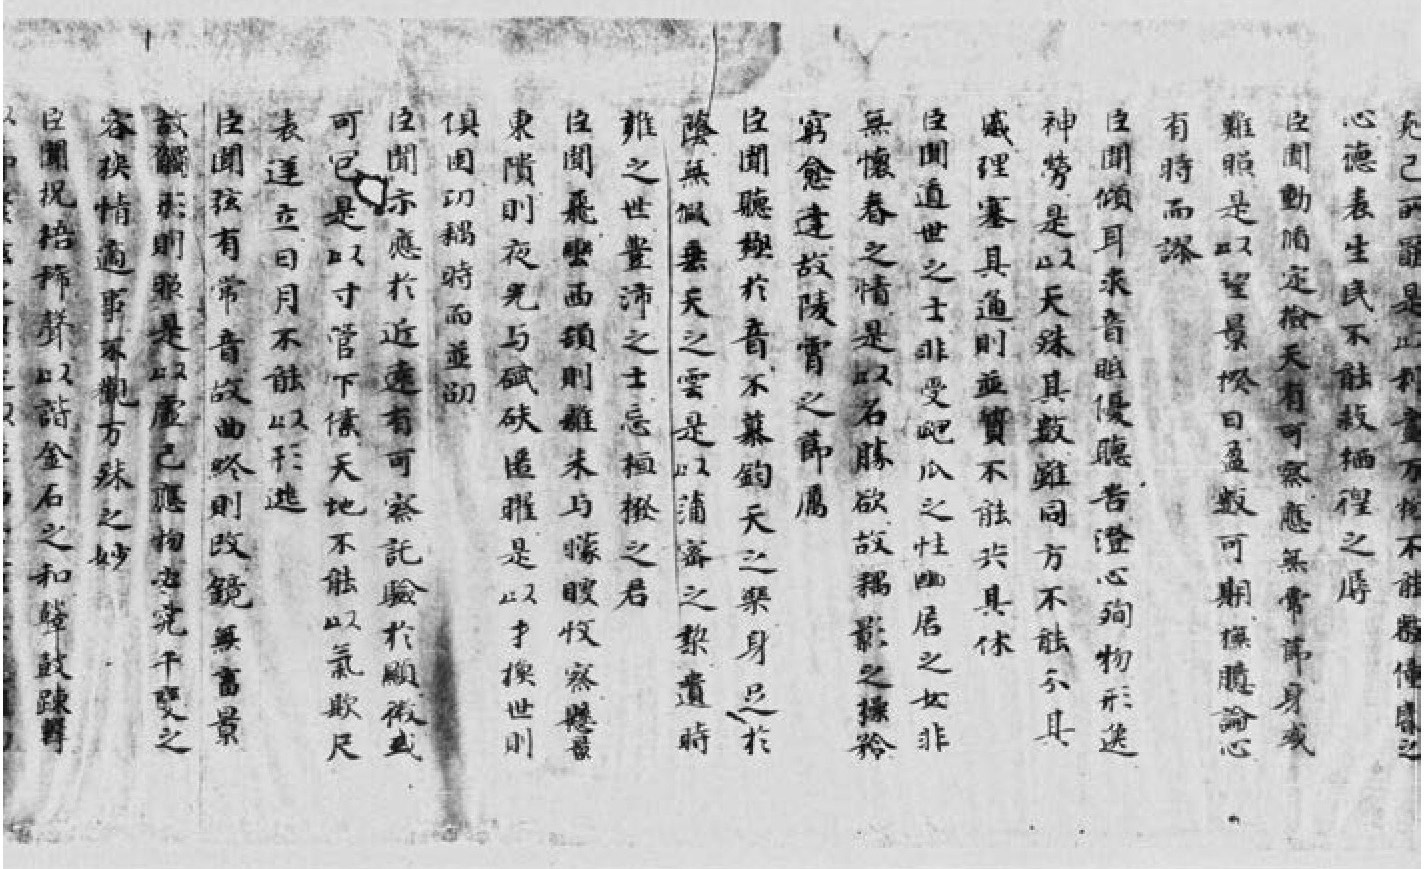 克己而勗是以利盡万物不能叡僮昬之
心德表生民不能救栖徨之辱
臣聞動循定檢天有可察應無常節身或
難照是以望景揆日盈數可期撫臆論心
有時而謬
臣聞傾耳求音眡優聽苦澄心殉物形逸
神勞是以天殊其數雖同方不能分其
慼理塞其通則並質不能共其休
臣聞遁世之士非受匏瓜之性幽居之女非
無懷春之情是以名勝欲故耦影之操矜
窮愈達故陵霄之節厲
臣聞聽極於音不慕鈞天之樂身足於
蔭無假垂天之雲是以蒲密之黎遺時
雍之世豊沛之士忘桓撥之君
臣聞飛轡西頓則離朱与矇瞍收察懸景
東隤則夜光与碔砆匿耀是以才換世則
俱困功耦時而並劭
臣聞示應於近遠有可察託驗於顯微或
可包是以寸管下傃天地不能以氣欺尺
表逆立日月不能以形逃
臣聞弦有常音故曲終則改鏡無畜景
故觸形則照是以虛己應物必究千變之
容挾情適事不觀万殊之妙
臣聞柷梧稀聲以諧金石之和鼙鼓踈擊